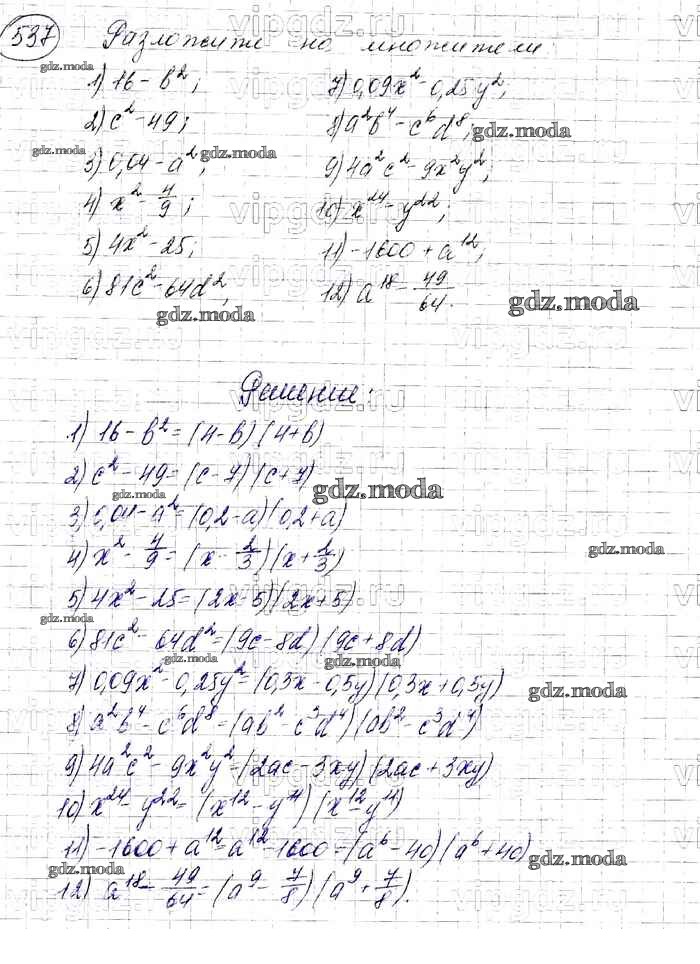 537 Разложить на множители
1) 16 - b²;
2) c² - 49;
3) 0,04 - a²;
4) x² - 4/9;
5) 4x² - 25;
6) 81c² - 64d²;
7) 0,09x² - 0,25y²;
8) a²b⁴ - c⁶d⁸;
9) 4a²c² - 9x²y²;
10) x²⁴ - y²²;
11) -1600 + a¹²;
12) a¹⁸ - 49/64.
Решение:
1) 16 - b² = (4 - b)(4 + b)
2) c² - 49 = (c - 7)(c + 7)
3) 0,04 - a² = (0,2 - a)(0,2 + a)
4) x² - 4/9 = (x - 2/3)(x + 2/3)
5) 4x² - 25 = (2x - 5)(2x + 5)
6) 81c² - 64d² = (9c - 8d)(9c + 8d)
7) 0,09x² - 0,25y² = (0,3x - 0,5y)(0,3x + 0,5y)
8) a²b⁴ - c⁶d⁸ = (ab² - c³d⁴)(ab² - c³d⁴)
9) 4a²c² - 9x²y² = (2ac - 3xy)(2ac + 3xy)
10) x²⁴ - y²² = (x¹² - y¹¹)(x¹² - y¹¹)
11) -1600 + a¹² = a¹² - 1600 = (a⁶ - 40)(a⁶ + 40)
12) a¹⁸ - 49/64 = (a⁹ - 7/8)(a⁹ + 7/8).
gdz.moda
vipgdz.ru